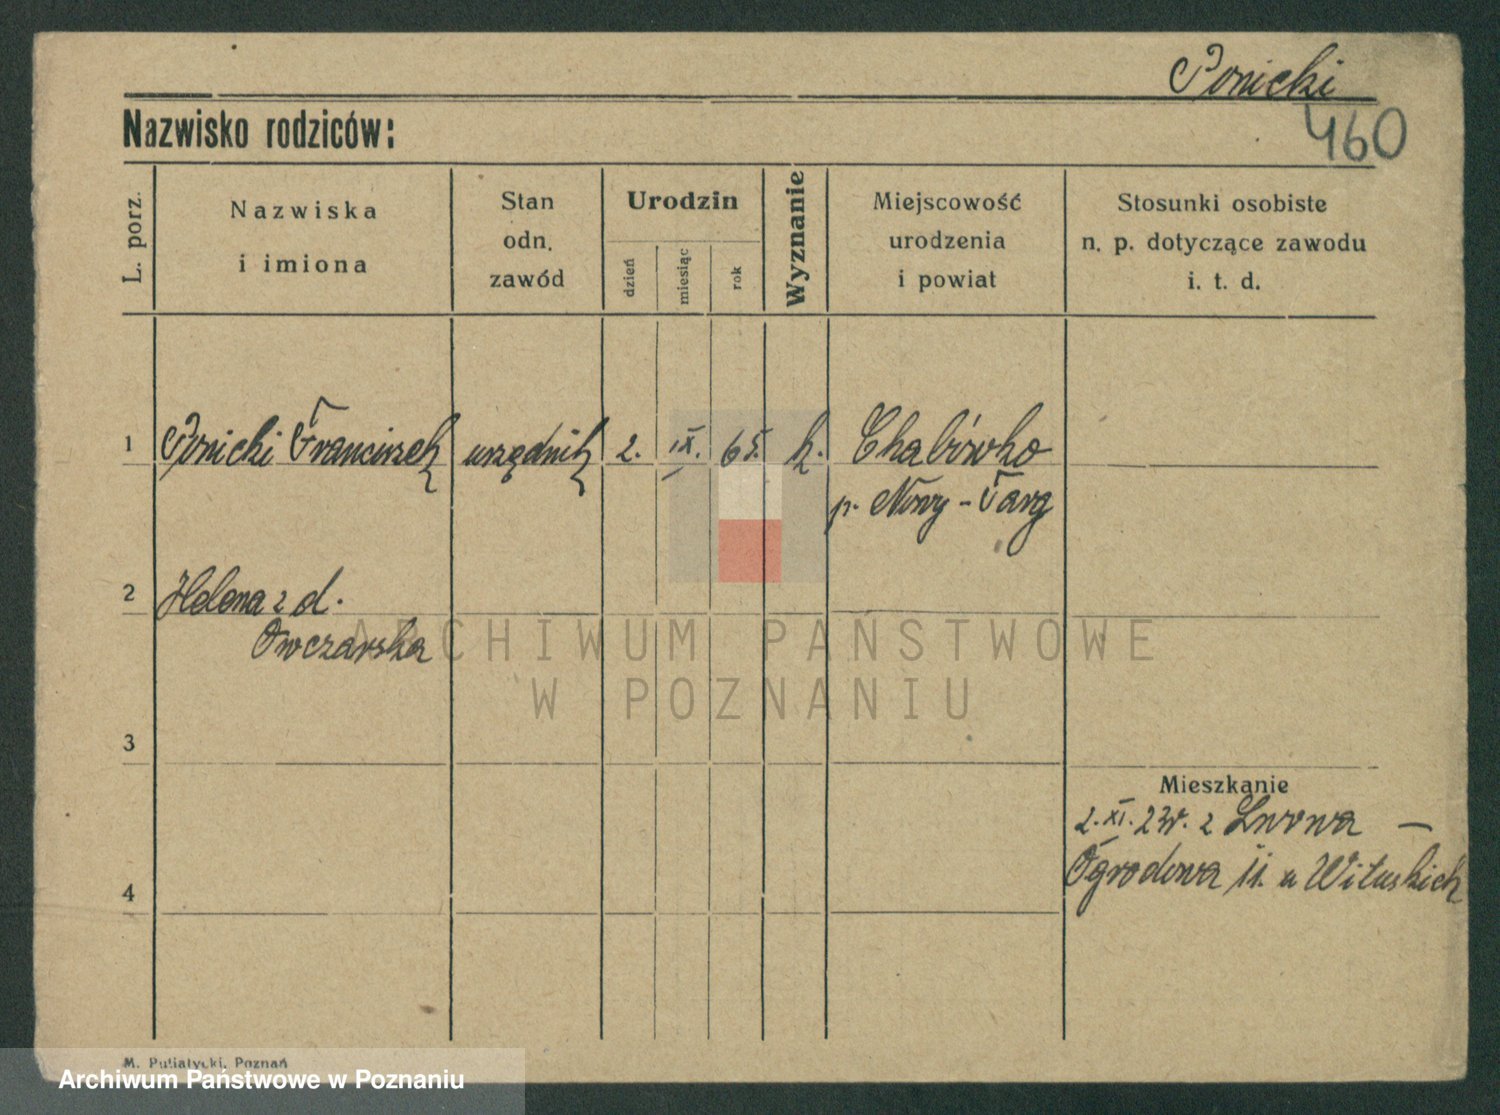 Ponicki
Nazwisko rodziców:
460
L. porz.
Nazwiska
i imiona
Stan
odn.
zawód
Urodzin
dzień
miesiąc
rok
Wyznanie
Miejscowość
urodzenia
i powiat
Stosunki osobiste
n. p. dotyczące zawodu
i. t. d.
1 Ponicki Franciszek urzędnik 2. IX. 65. k. Chabówka
p. Nowy-Targ
2 Helena z d.
Owczarska
ARCHIWUM PAŃSTWOWE
W POZNANIU
3
Mieszkanie
2. XI. 23r. z Lwowa —
4 Ogrodowa 11. u Wituskich
M. Putiatycki, Poznań
Archiwum Państwowe w Poznaniu